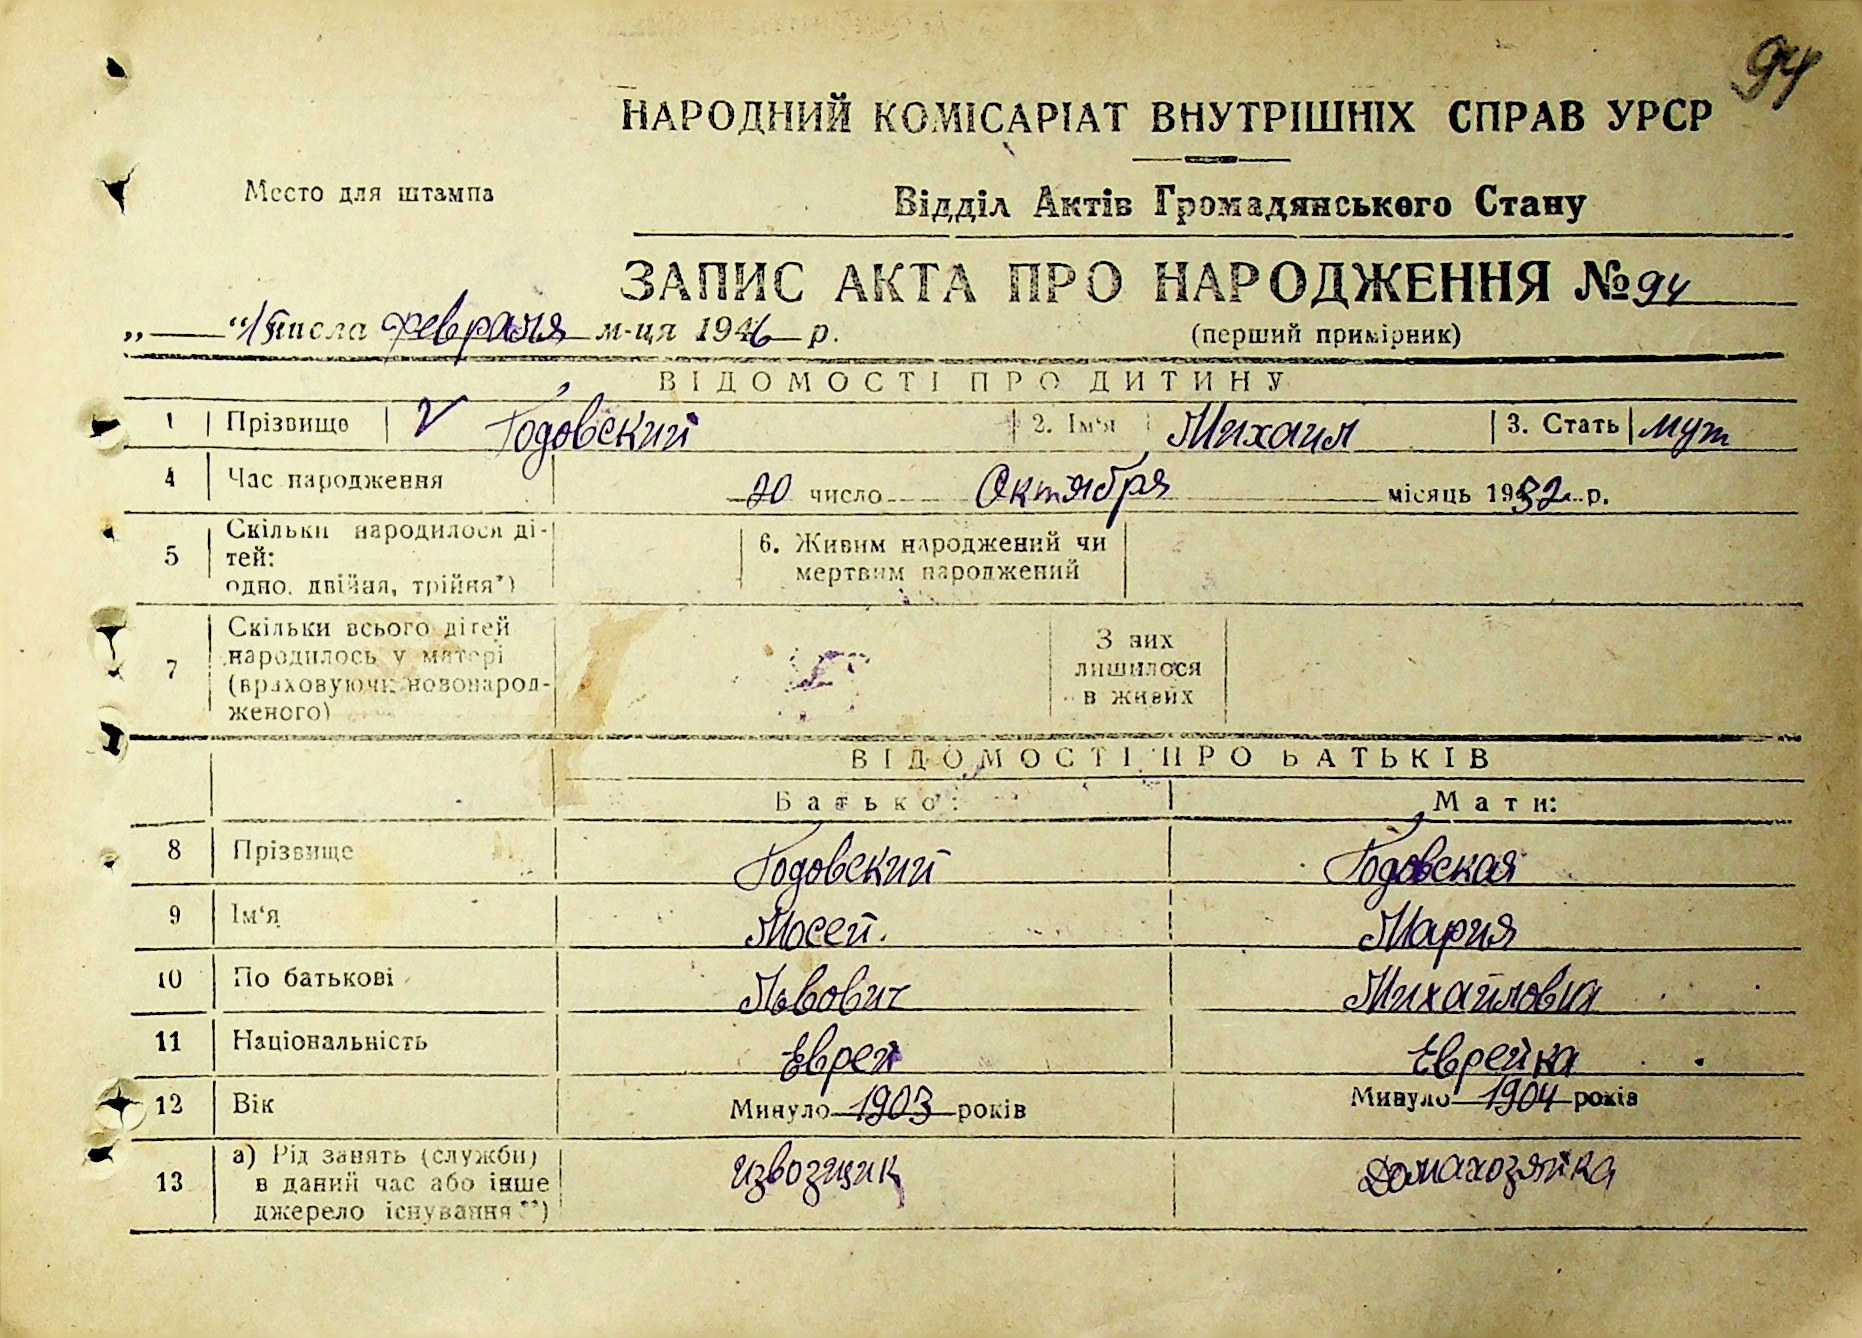 94
НАРОДНИЙ КОМІСАРІАТ ВНУТРІШНІХ СПРАВ УРСР
Место для штампа
Відділ Актів Громадянського Стану
ЗАПИС АКТА ПРО НАРОДЖЕННЯ № 94
„ “ 15 числа февраля м-ця 1946 р.
(перший примірник)
ВІДОМОСТІ ПРО ДИТИНУ
1 Прізвище Годовский 2. Ім'я Михаил 3. Стать муж
4 Час народження 20 число Октября місяць 1932 р.
5 Скільки народилося ді-
тей:
одно, двійня, трійня*)
6. Живим народжений чи
мертвим народжений
7 Скільки всього дітей
народилось у матері
(враховуючи новонарод-
женого)
З них
лишилося
в живих
ВІДОМОСТІ ПРО БАТЬКІВ
Батько: Мати:
8 Прізвище Годовский Годовская
9 Ім'я Мосей. Мария
10 По батькові Львович Михайловна
11 Національність Еврей Еврейка
12 Вік Минуло 1903 років Минуло 1904 років
13 а) Рід занять (служби)
в даний час або інше
джерело існування **)
извозщик Домахозяйка